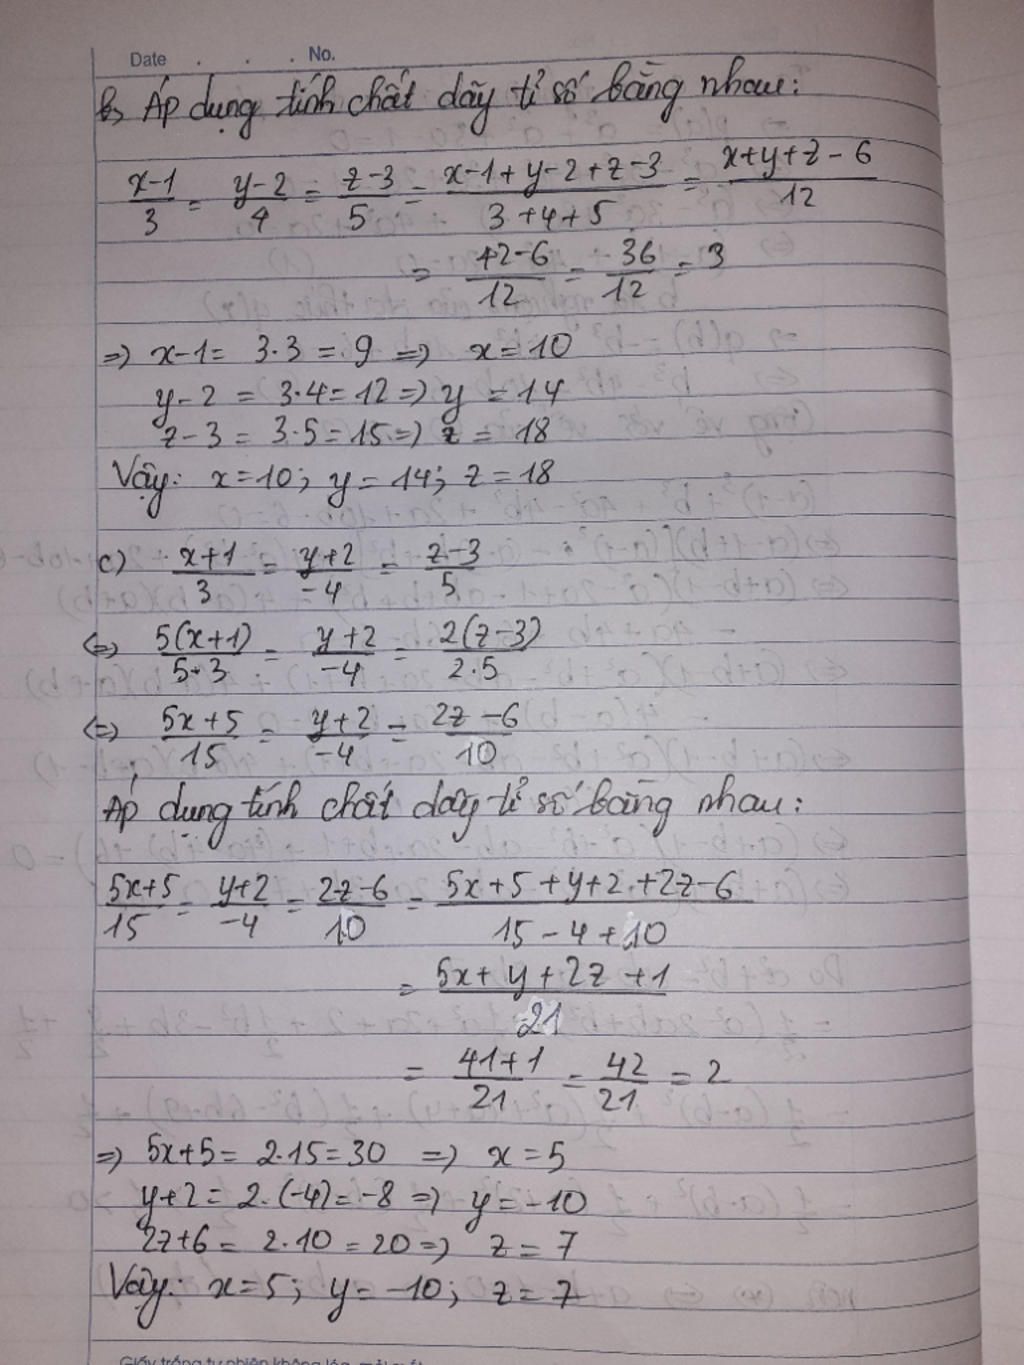 Date . . . No.
b, Áp dụng tính chất dãy tỉ số bằng nhau:
x-1/3 = y-2/4 = z-3/5 = x-1+y-2+z-3/3+4+5 = x+y+z-6/12
= 42-6/12 = 36/12 = 3
=> x-1= 3.3 = 9 => x=10
y-2 = 3.4=12=> y =14
z-3 = 3.5=15=> z = 18
Vậy: x=10; y=14; z=18
c) x+1/3 = y+2/-4 = z-3/5
<=> 5(x+1)/5.3 = y+2/-4 = 2(z-3)/2.5
<=> 5x+5/15 = y+2/-4 = 2z-6/10
Áp dung tính chất dãy tỉ số bằng nhau:
5x+5/15 = y+2/-4 = 2z-6/10 = 5x+5+y+2+2z-6/15-4+10
= 5x+y+2z+1/21
= 41+1/21 = 42/21 = 2
=> 5x+5= 2.15=30 => x=5
y+2=2.(-4)=-8=> y=-10
2z+6= 2.10=20=> z=7
Vậy: x=5; y=-10; z=7